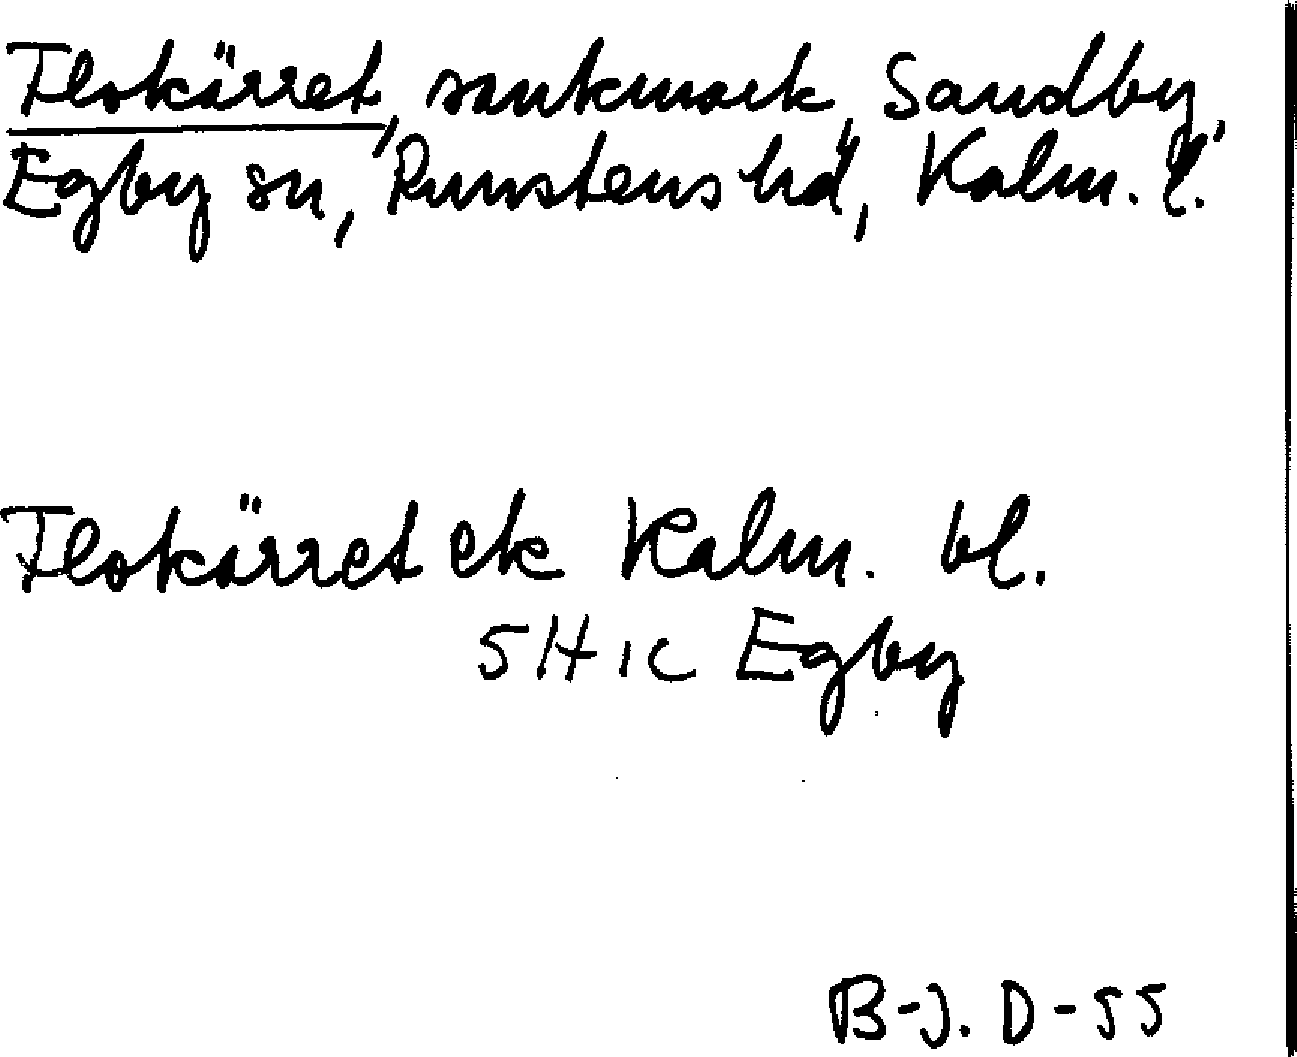 Floskärret, sankmark, Sandby,
Egby sn, Runstens hd, Kalm. l.
Floskärret ek Kalm. bl.
5H 1c Egby
B-J. D-55